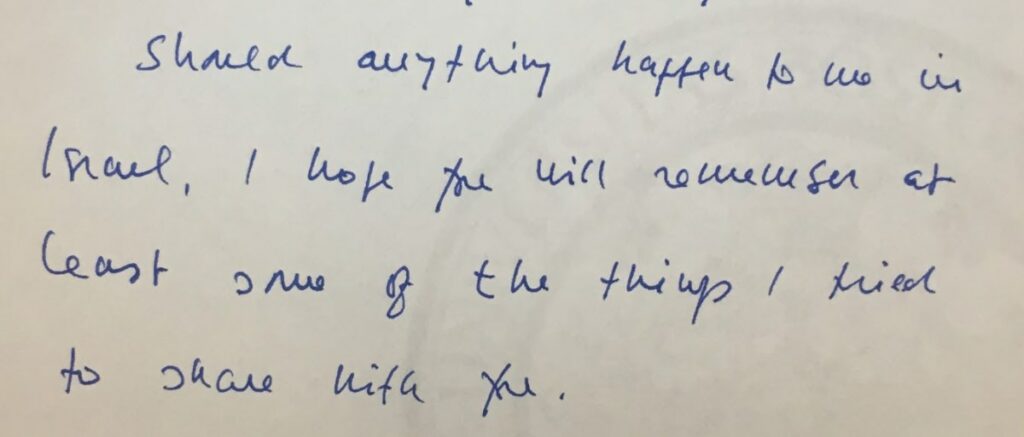 Should anything happen to me in
Israel, I hope you will remember at
least some of the things I tried
to share with you.